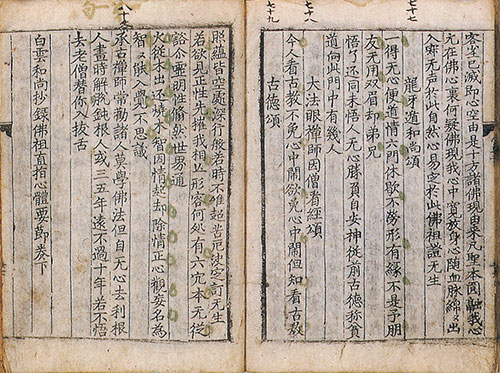 七十七
七十八
七十九
客字已滅即心空由是十方諸佛現由來凡聖本圓融我心
元在佛心裏何疑佛現我心中寬放身心隨血脉綿〻出
入寂无声於此自然心易空於此佛祖證无生
龍牙遁和尚頌
一得无心便道情六門休歇不勞形有緣不是予朋
友无用双眉却弟兄
悟了还同未悟人无心勝負自安神從前古德称貧
道向此門中有幾人
大法眼禪師因僧看經頌
今人看古教不免心中鬧欲免心中鬧但知看古教
古德頌
八十
照蘊皆空處深行般若時不唯超苦厄徒空訂无生
若欲見正性先摧我相山形容何處有六宂本无從
豁尒靈明性翛然世界通
火從木出还燒木智因情起却除情正心觀妄名為
智〻能入覺不思議
承古禪師常勸諸人莫學佛法但自无心去利根
人畫時解脫鈍根人或三五年遠不過十年若不悟
去老僧替你入拔舌
白雲和尚抄錄佛祖直指心體要節卷下